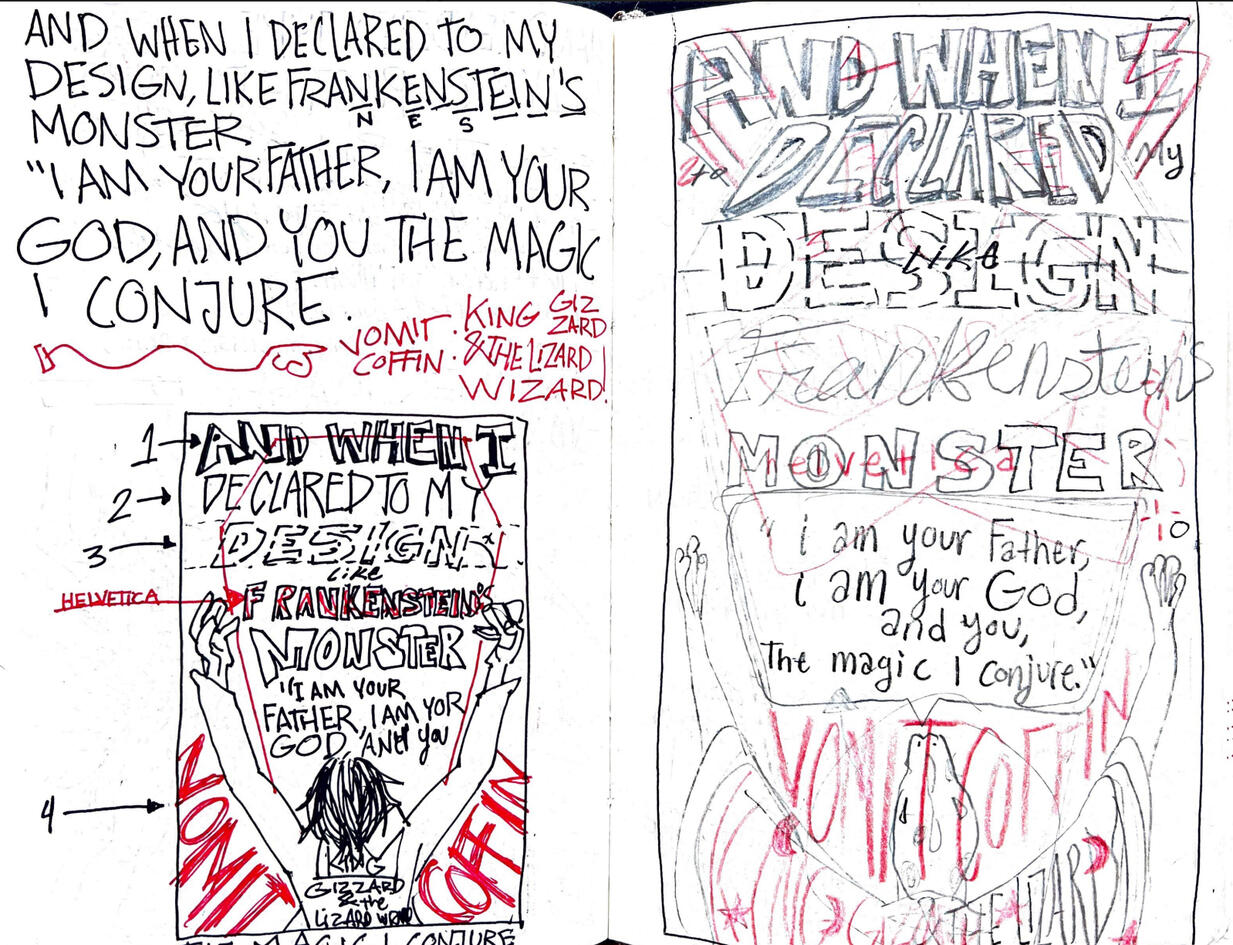 AND WHEN I DECLARED TO MY
DESIGN, LIKE FRANKENSTEIN'S
N E S
MONSTER
"I AM YOUR FATHER, I AM YOUR
GOD, AND YOU THE MAGIC
I CONJURE.
VOMIT COFFIN.
KING GIZ
ZARD
& THE LIZARD
WIZARD.
1
AND WHEN I
2
DECLARED TO MY
3
DESIGN
like
HELVETICA
FRANKENSTEIN'S
MONSTER
"I AM YOUR
FATHER, I AM YOR
GOD, AND you
4
VOMIT
COFFIN
KING
GIZZARD
& the
LIZARD
THE MAGIC I CONJURE
AND WHEN I
DECLARED
to
My
DESIGN
like
Frankenstein's
MONSTER
Helvetica
"i am your Father,
i am your God,
and you,
The magic I conjure."
VOMIT COFFIN
& THE LIZARD